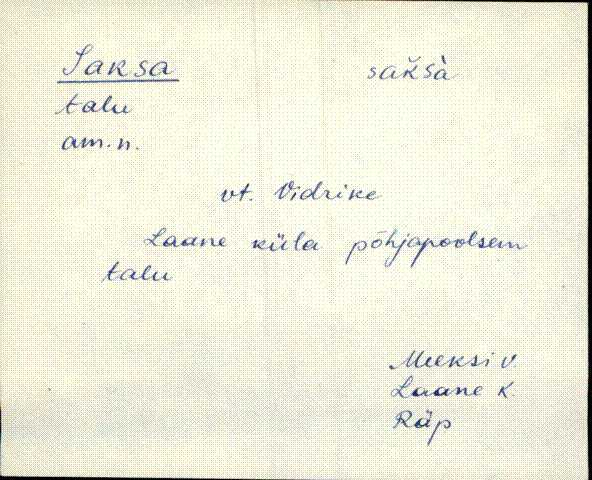 Saksa sak̆sà
talu
am. n.
vt. Vidrike
Laane küla põhjapoolsem
talu
Meeksi v.
Laane k.
Räp